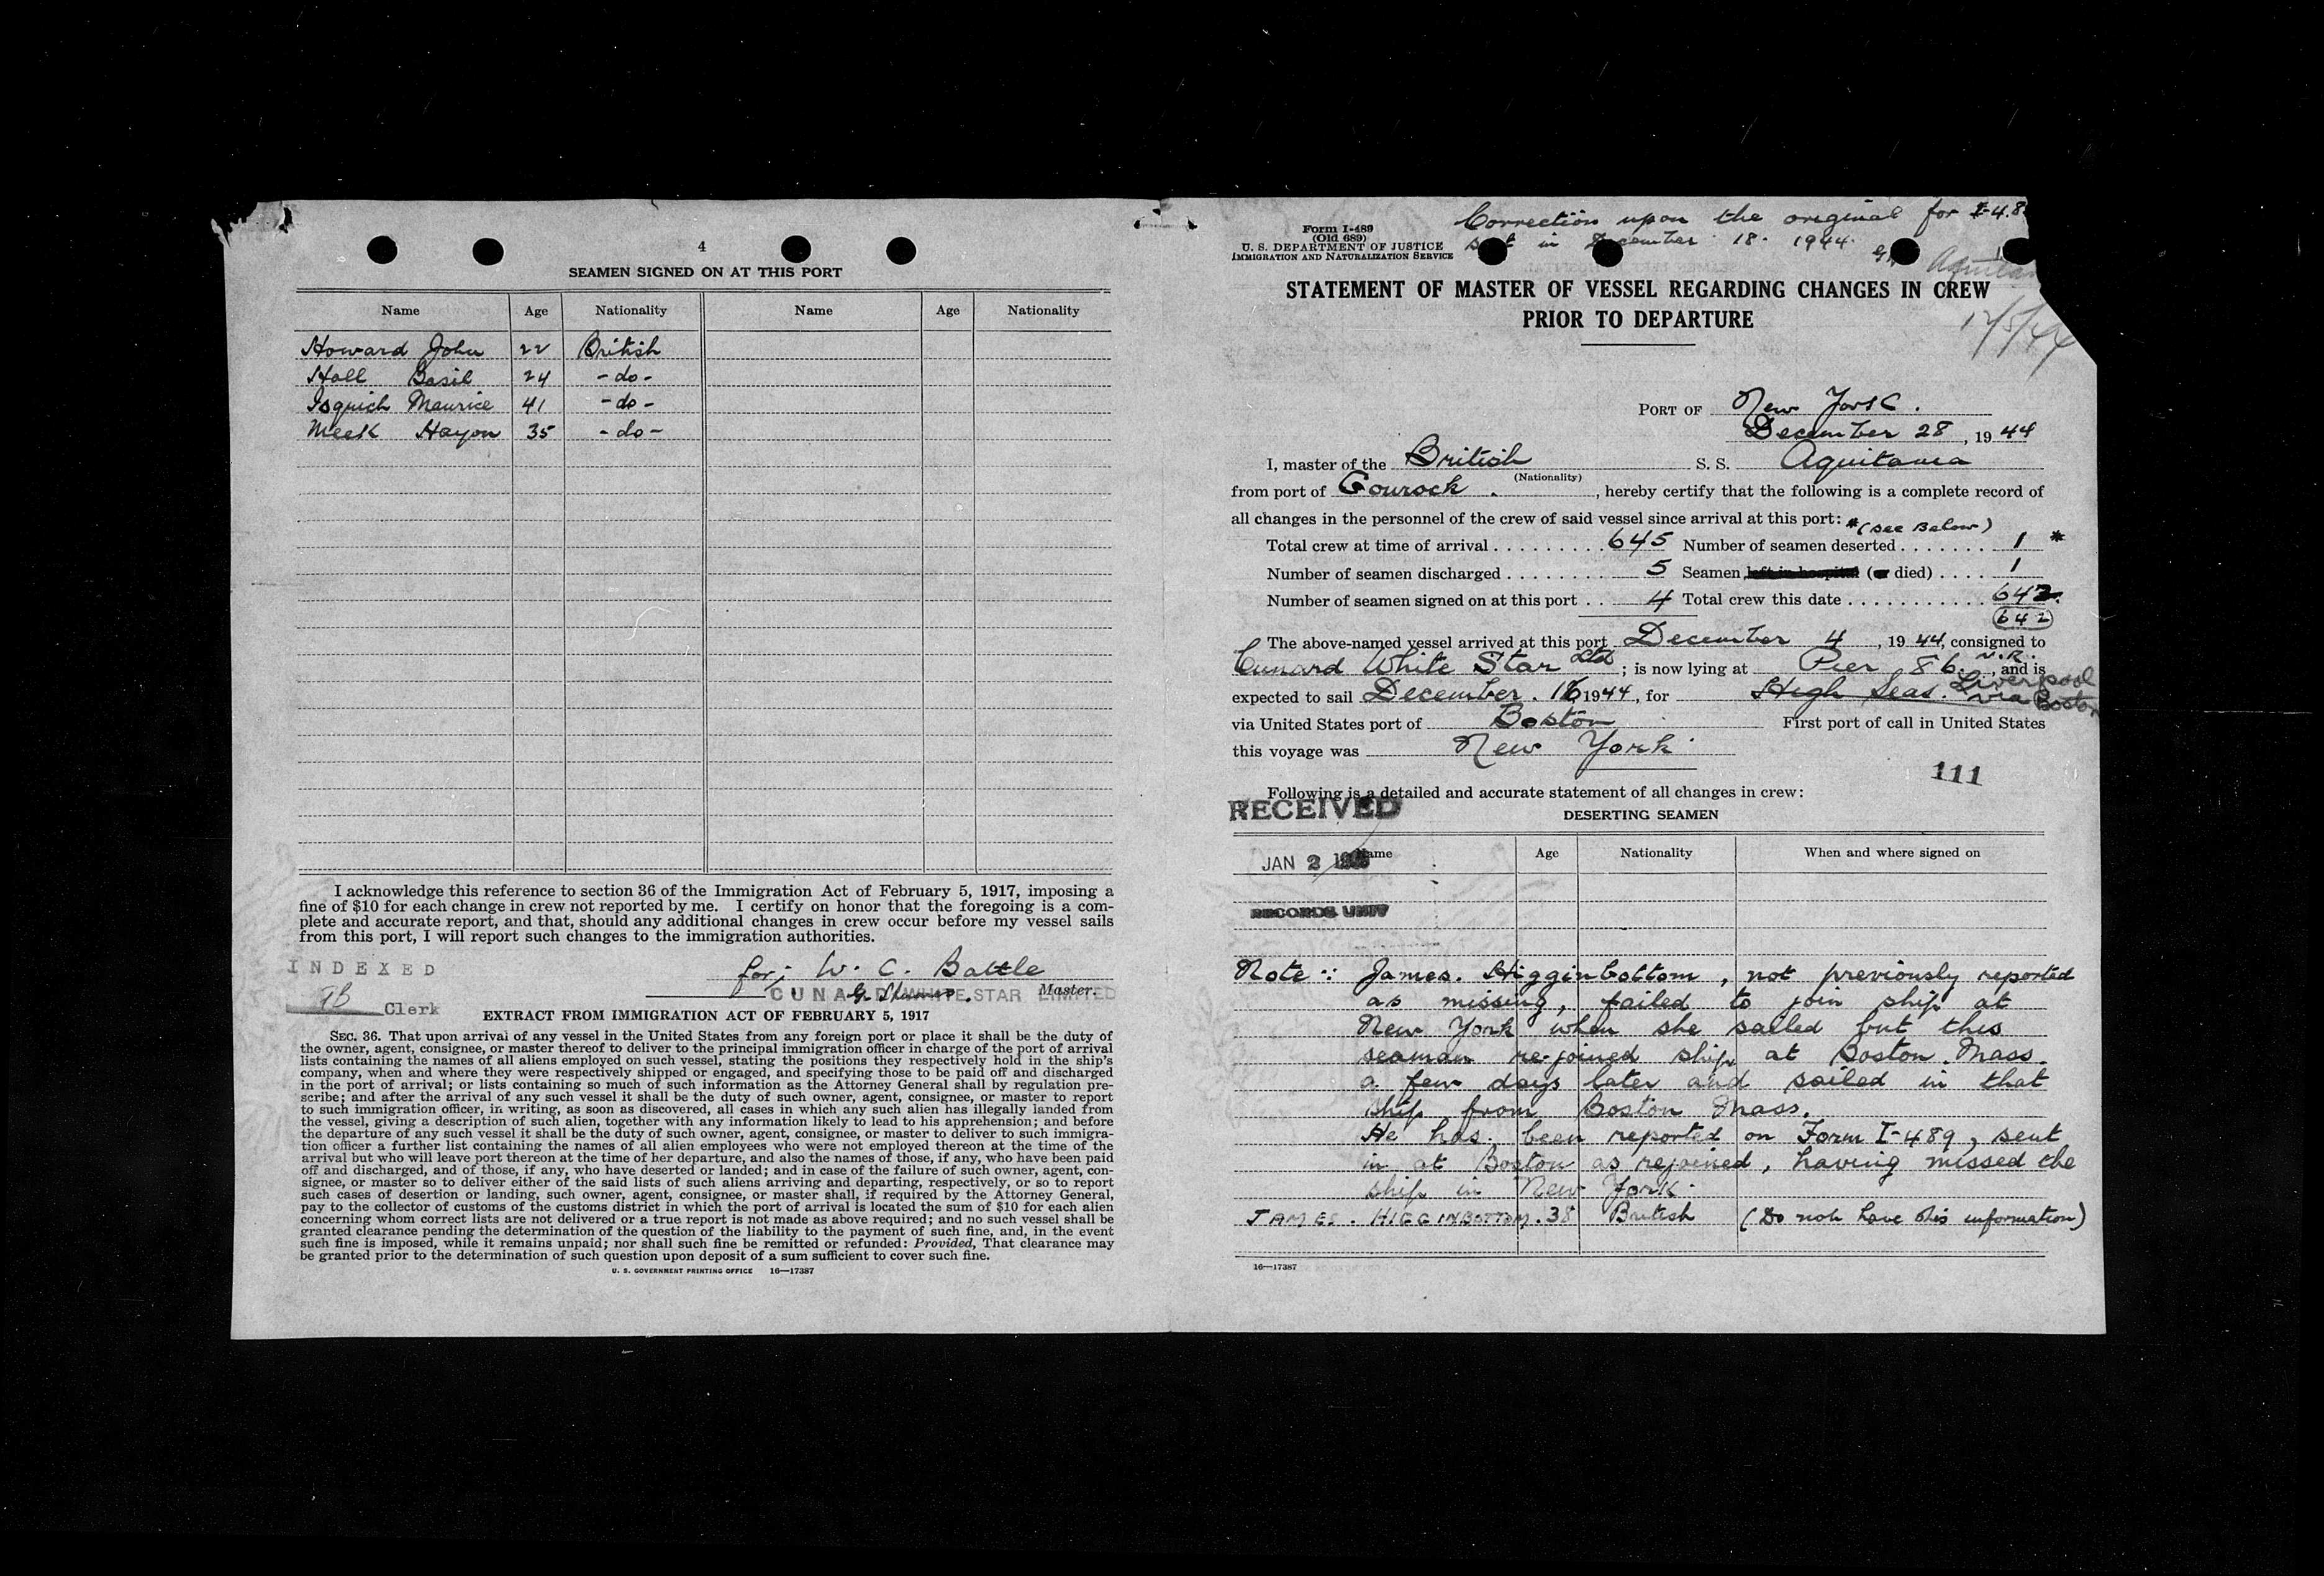 4
SEAMEN SIGNED ON AT THIS PORT
Name Age Nationality Name Age Nationality
Howard John 22 British
Hall Basil 24 - do -
Isquich Maurice 41 - do -
Meek Hayon 35 - do -
I acknowledge this reference to section 36 of the Immigration Act of February 5, 1917, imposing a
fine of $10 for each change in crew not reported by me. I certify on honor that the foregoing is a com-
plete and accurate report, and that, should any additional changes in crew occur before my vessel sails
from this port, I will report such changes to the immigration authorities.
INDEXED
for; W. C. Battle
CUNARD WHITE STAR LIMITED Master.
Clerk
EXTRACT FROM IMMIGRATION ACT OF FEBRUARY 5, 1917
SEC. 36. That upon arrival of any vessel in the United States from any foreign port or place it shall be the duty of
the owner, agent, consignee, or master thereof to deliver to the principal immigration officer in charge of the port of arrival
lists containing the names of all aliens employed on such vessel, stating the positions they respectively hold in the ship's
company, when and where they were respectively shipped or engaged, and specifying those to be paid off and discharged
in the port of arrival; or lists containing so much of such information as the Attorney General shall by regulation pre-
scribe; and after the arrival of any such vessel it shall be the duty of such owner, agent, consignee, or master to report
to such immigration officer, in writing, as soon as discovered, all cases in which any such alien has illegally landed from
the vessel, giving a description of such alien, together with any information likely to lead to his apprehension; and before
the departure of any such vessel it shall be the duty of such owner, agent, consignee, or master to deliver to such immigra-
tion officer a further list containing the names of all alien employees who were not employed thereon at the time of the
arrival but who will leave port thereon at the time of her departure, and also the names of those, if any, who have been paid
off and discharged, and of those, if any, who have deserted or landed; and in case of the failure of such owner, agent, con-
signee, or master so to deliver either of the said lists of such aliens arriving and departing, respectively, or so to report
such cases of desertion or landing, such owner, agent, consignee, or master shall, if required by the Attorney General,
pay to the collector of customs of the customs district in which the port of arrival is located the sum of $10 for each alien
concerning whom correct lists are not delivered or a true report is not made as above required; and no such vessel shall be
granted clearance pending the determination of the question of the liability to the payment of such fine, and, in the event
such fine is imposed, while it remains unpaid; nor shall such fine be remitted or refunded: Provided, That clearance may
be granted prior to the determination of such question upon deposit of a sum sufficient to cover such fine.
U. S. GOVERNMENT PRINTING OFFICE 16—17387
Correction upon the original for I-48
in December 18. 1944.
Form I-489
(Old 689)
U. S. DEPARTMENT OF JUSTICE
IMMIGRATION AND NATURALIZATION SERVICE
STATEMENT OF MASTER OF VESSEL REGARDING CHANGES IN CREW
PRIOR TO DEPARTURE
12/5/44
PORT OF New York.
December 28, 1944
I, master of the British S. S. Aquitania
(Nationality)
from port of Gourock. , hereby certify that the following is a complete record of
all changes in the personnel of the crew of said vessel since arrival at this port: * (see Below)
Total crew at time of arrival . . . . . . . . . 645 Number of seamen deserted . . . . . . . 1 *
Number of seamen discharged . . . . . . . . 5 Seamen left in hospital (or died) . . . . 1
Number of seamen signed on at this port . . 4 Total crew this date . . . . . . . . . . . . 642
642
The above-named vessel arrived at this port December 4, 1944, consigned to
Cunard White Star Ltd ; is now lying at Pier 86. N.R. , and is
expected to sail December. 16 1944, for High Seas. Liverpool via Boston
via United States port of Boston First port of call in United States
this voyage was New York.
111
Following is a detailed and accurate statement of all changes in crew:
RECEIVED
DESERTING SEAMEN
JAN 2
Name Age Nationality When and where signed on
RECORDS UNIT
Note:: James. Higginbottom, not previously reported
as missing, failed to join ship at
New York when she sailed but this
seaman re-joined ship at Boston. Mass.
a few days later and sailed in that
ship from Boston Mass.
He has been reported on Form I-489, sent
in at Boston as rejoined, having missed the
ship in New York.
JAMES. HIGGINBOTTOM. 38 British (Do not have this information)
16—17387